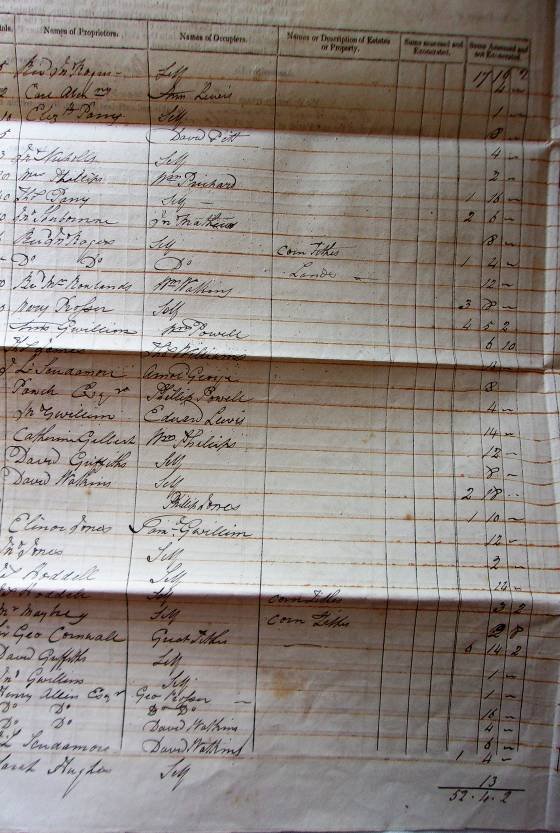 Names of Proprietors. Names of Occupiers. Names or Description of Estates or Property. Sums assessed and Exonerated. Sums Assessed and not Exonerated.
Revd Jno Rogers Self 17 19 2
Ann Lewis 4
Elizth Parry Self 1
David Pitt 8
Jno Nicholls Self 4
Mrs Phillips Wm Prichard 2
Thos Parry Self 1 16
Jno Mathews 2 6
Revd Jno Rogers Self corn Tithes 8
Do Do Do Lands 1 4
Revd Mr Rowlands Wm Watkins 12
Mary Prosser Self 3 8
Ann Gwillim Wm Powell 4 5 2
Jones Thos Williams 6 10
L Scudamore Amos George
Esqr Phillip Powell 8
Jno Gwillim Edward Lewis 4
Catherine Gilbert Wm Phillips 14
David Griffiths Self 12
David Watkins Self 8
Phillip Jones 2 18
Elinor Jones Saml Gwillim 1 10
Jno Jones Self 12
Hoddell Self 2
Hoddell Self corn Tithes
Mr Maybery Self corn Tithes 3 2
Geo Cornwall Great Tithes 2 8
David Griffiths Self 6 14 2
Jno Gwillim Self 1
Henry Allen Esqr Geo Prosser 1
Do Do Do Do 16
Do Do David Watkins 4
L Scudamore David Watkins 6
Sarah Hughes Self 1 4
13
52 . 4 . 2